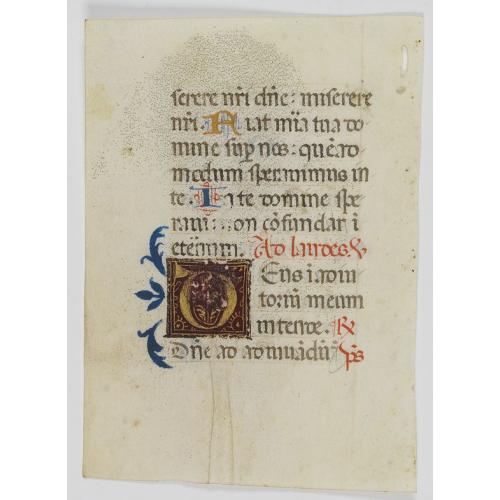 serere nr̃i dñe : miserere
nr̃i. Fiat mĩa tua do
mine sup̃ nos : quẽad
modum sperauimus in
te. In te domine spe
raui : non cõfundar ĩ
etẽrnum. Ad laudes. ℣
Deus ĩ adiu
toriũ meum
intende. ℟
Dñe ad adiuuãdũ p̃s